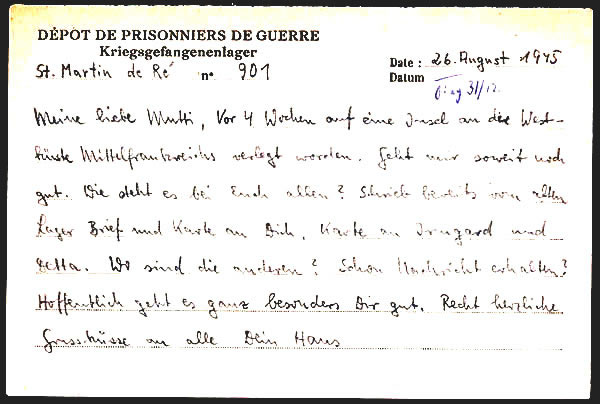 DÉPÔT DE PRISONNIERS DE GUERRE
Kriegsgefangenenlager
St. Martin de Ré n° 901
Date : 26. August 1945
Datum
31/12.
Meine liebe Mutti, Vor 4 Wochen auf eine Insel an die West-
küste Mittelfrankreichs verlegt worden. Geht mir soweit noch
gut. Wie steht es bei Euch allen? Schrieb bereits vom alten
Lager Brief und Karte an Dich, Karte an Irmgard und
Detta. Wo sind die anderen? Schon Nachricht erhalten?
Hoffentlich geht es ganz besonders Dir gut. Recht herzliche
Grussküsse an alle Dein Hans